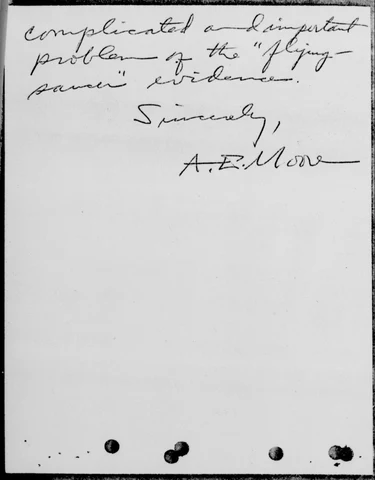 complicated and important
problem of the "flying-
saucer" evidence.
Sincerely,
A. E. Moore